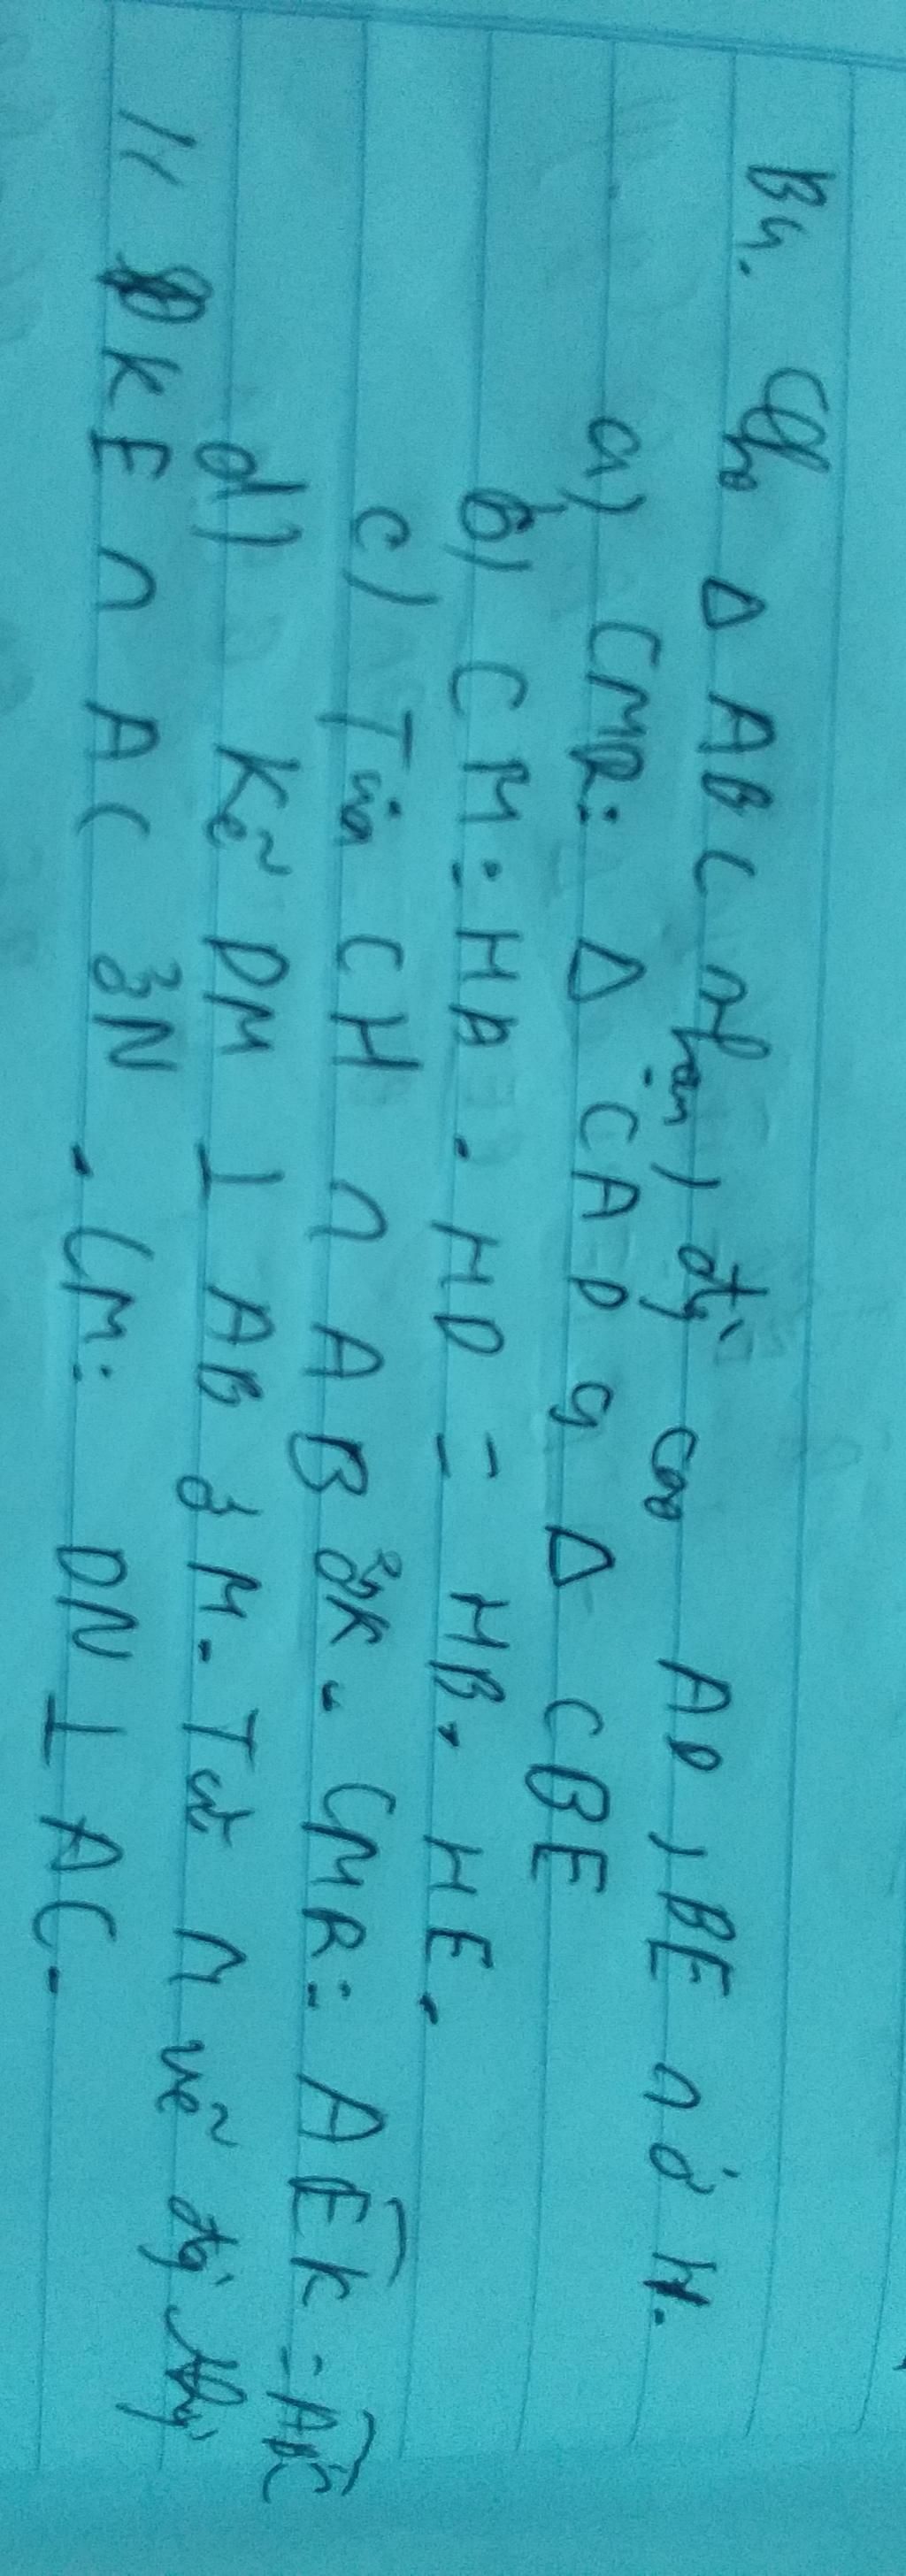 B4. Cho Δ ABC nhọn, đg` cao AD, BE ∩ ở H.
a) CMR: Δ CAD ∽ Δ CBE
b) CM: HA. HD = HB. HE.
c) Tia CH ∩ AB ở K. CMR: AEK = ABC
d) Kẻ DM ⊥ AB ở M. Từ M vẽ đg` thg`
// KE ∩ AC ở N. CM: DN ⊥ AC.